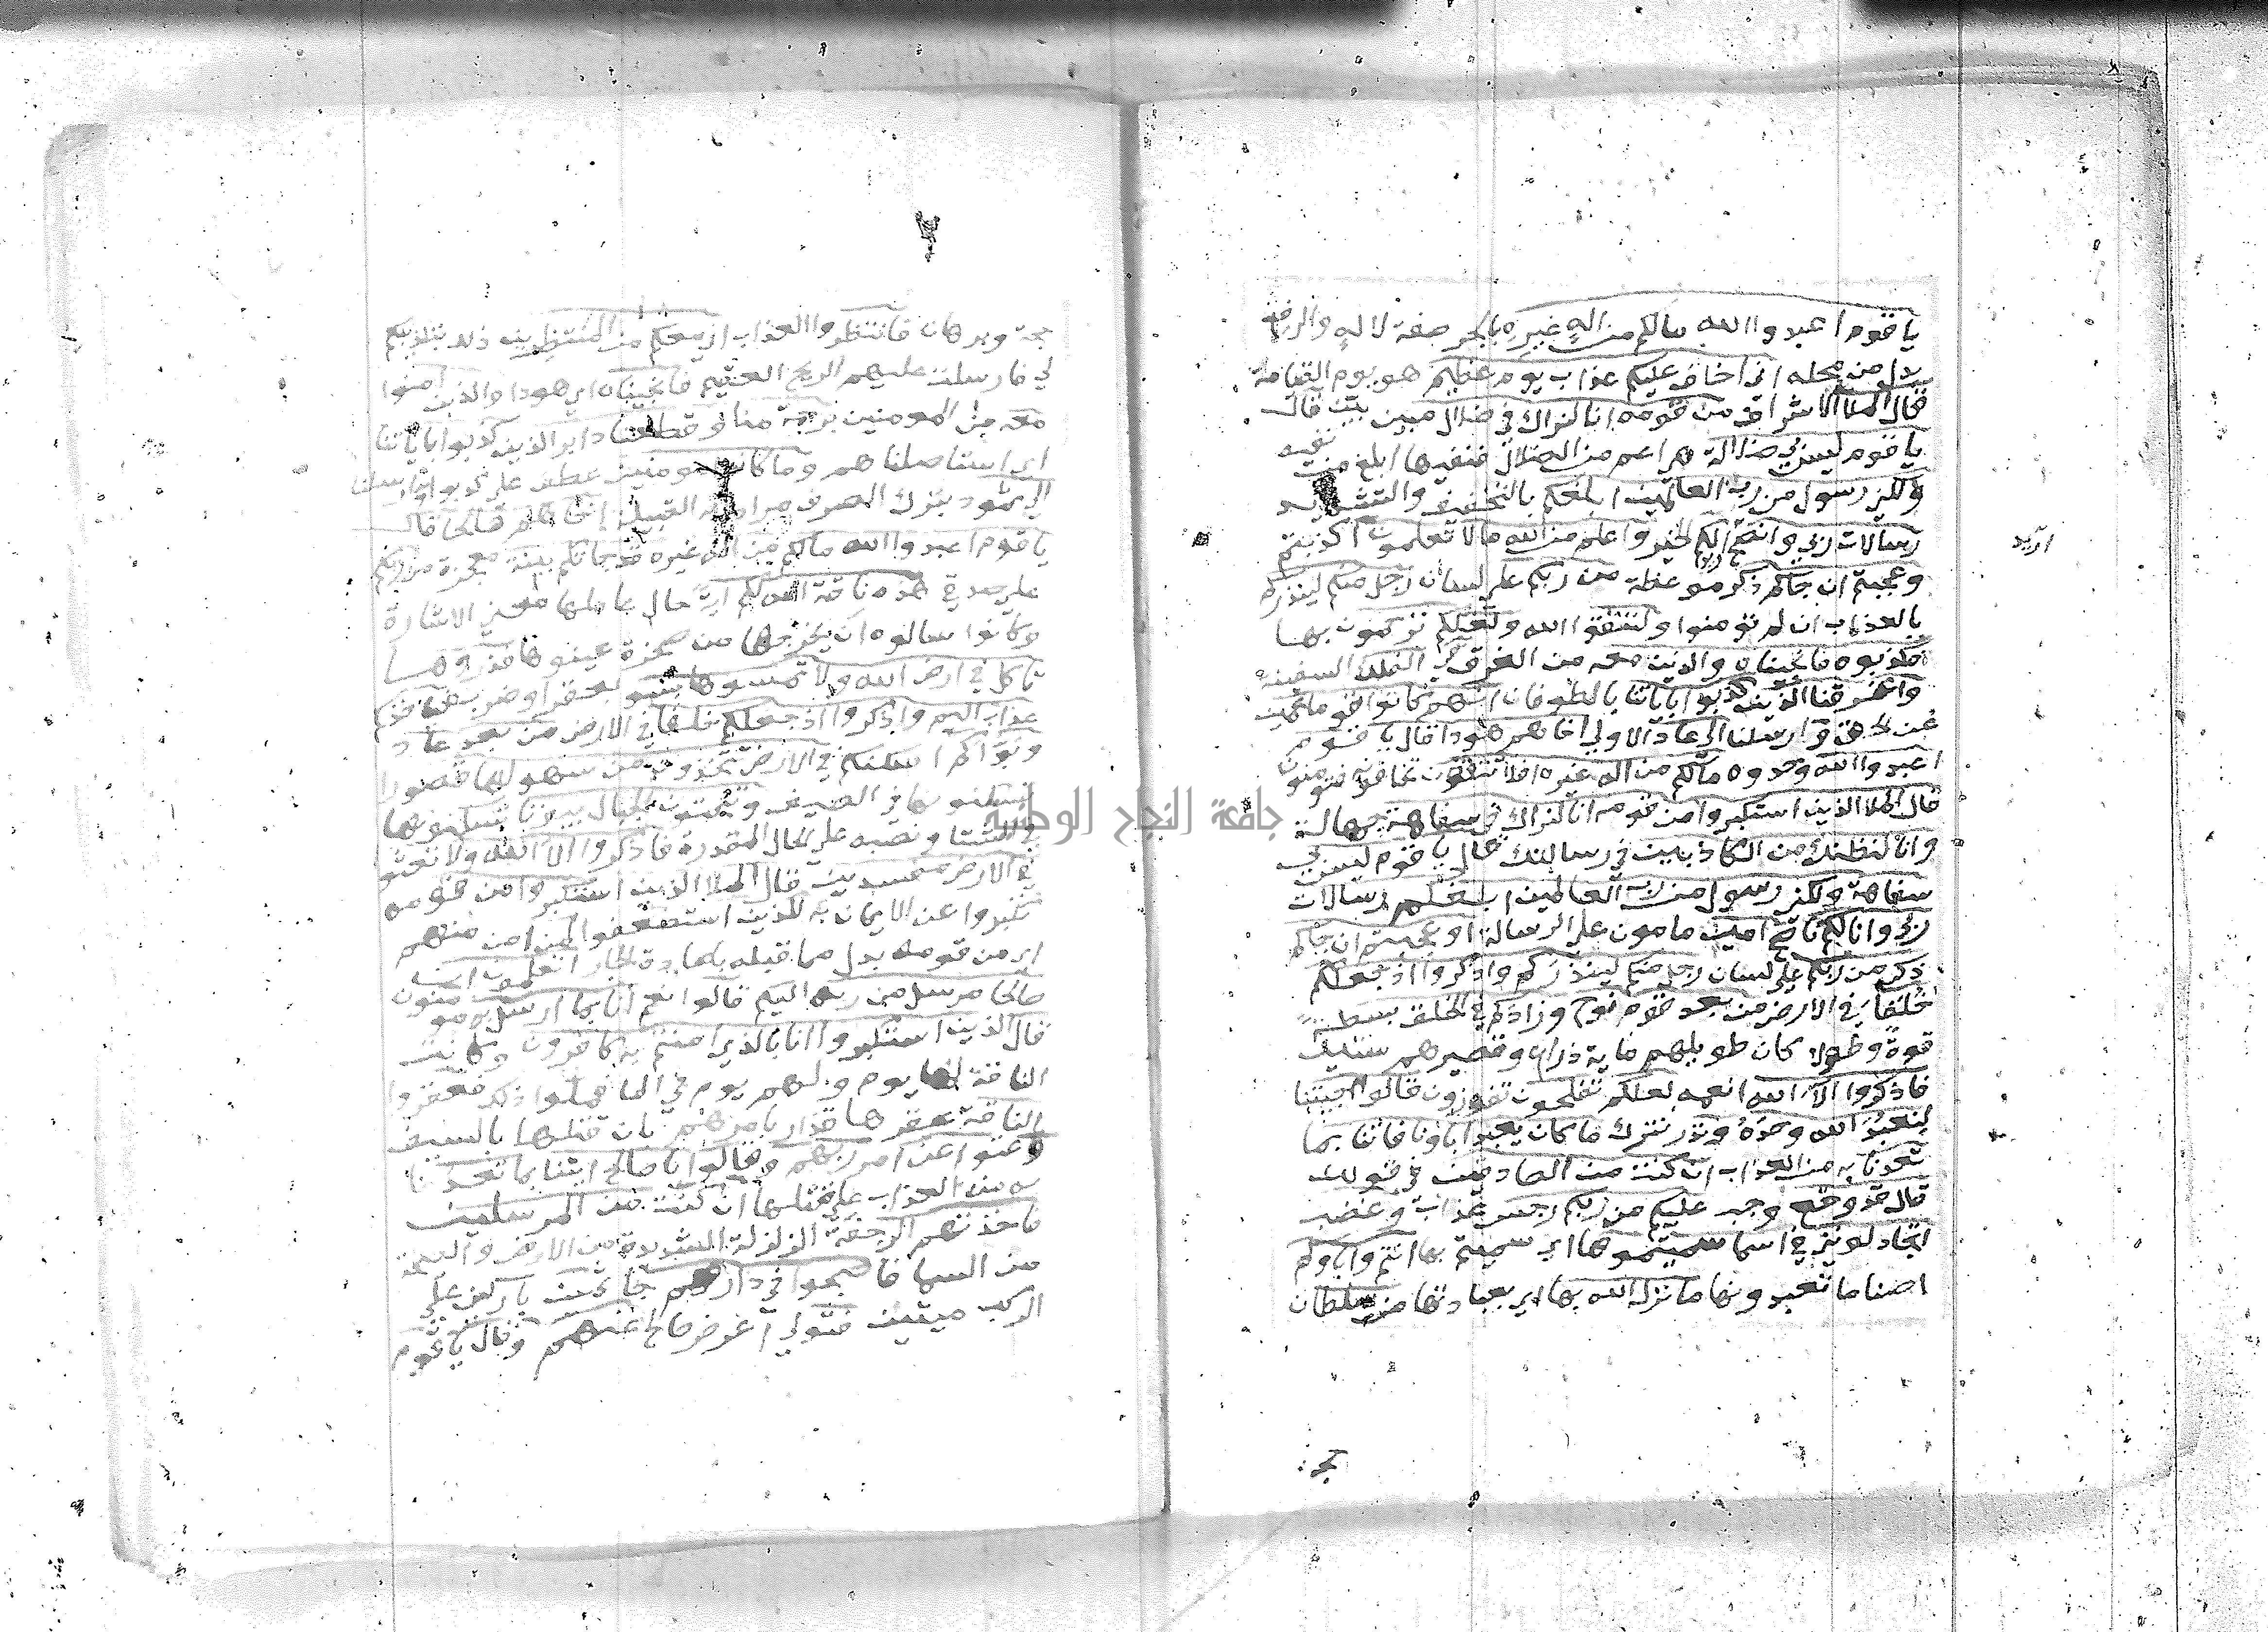 يا قوم اعبدوا الله مالكم من الهٍ غيرِه بالجر صفة لالهٍ والرفع
بدل من محله اني اخاف عليكم عذاب يوم عظيم هو يوم القيامة
قال الملا الاشراف من قومه انا لنراك في ضلال مبين بين قال
يا قوم ليس بي ضلالة هي اعم من الضلال فنفيها ابلغ من نفيه
ولكني رسول من رب العالمين ابلغكم بالتخفيف والتشديد
رسالات ربي وانصح لكم الخير واعلم من الله مالا تعلمون اكذبتم
اريد
وعجبتم ان جاكم ذكر موعظة من ربكم على لسان رجل منكم لينذركم
بالعذاب ان لم تومنوا ولتتقوا الله ولعلكم ترحمون بها
فكذبوه فانجيناه والذين معه من الغرق في الفلك السفينة
واغرقنا الذين كذبوا باياتنا بالطوفان انهم كانوا قوما عمين
عن الحق وارسلنا الى عاد الاولى اخاهم هودا قال يا قوم
اعبدوا الله وحدوه مالكم من اله غيره افلا تتقون تخافونه فتومنون
قال الملا الذين استكبروا من قومه انا لنراك في سفاهة جهالة
وانا لنظنك من الكاذبين في رسالتك قال يا قوم ليس بي
سفاهة ولكني رسول من رب العالمين ابلغكم رسالات
ربي وانا لكم ناصح امين مامون على الرسالة اوعجبتم ان جاكم
ذكر من ربكم على لسان رجل منكم لينذركم واذكروا اذ جعلكم
خلفا في الارض من بعد قوم نوح وزادكم في الخلق بسطة
قوة وطولا كان طويلهم ماية ذراع وقصيرهم ستين
فاذكروا الاء الله انعمه لعلكم تفلحون تفوزون قالوا اجيتنا
لنعبد الله وحده ونذر نترك ما كان يعبد اباونا فاتنا بما
تعدنا به من العذاب ان كنت من الصادقين في قولك
قال قد وقع وجب عليكم من ربكم رجس عذاب وغضب
اتجادلونني في اسما سميتموها اي سميتم بها انتم واباوكم
اصناما تعبدونها ما نزل الله بها اي بعبادتها من سلطان
حجة وبرهان فانتظروا العذاب اني معكم من المنتظرين ذلك بتكذيبكم
لي فارسلت عليهم الريح العقيم فانجيناه اي هودا والذين امنوا
معه من المومنين برحمة منا وقطعنا دابر الذين كذبوا باياتنا
اي استاصلناهم وما كانوا مومنين عطف على كذبوا وارسلنا
الى ثمود بترك الصرف مرادا به القبيلة اخاهم صالحا قال
يا قوم اعبدوا الله مالكم من اله غيره قد جاتكم بينة معجزة من ربكم
على صدقي هذه ناقة الله لكم اية حال عاملها معنى الاشارة
وكانوا سالوه ان يخرجها من صخرة عينوها فذروها
تاكل في ارض الله ولا تمسوها بسو بعقر او ضرب فياخذكم
عذاب اليم واذكروا اذ جعلكم خلفا في الارض من بعد عاد
وبواكم اسكنكم في الارض تتخذون من سهولها قصورا
تسكنونها في الصيف وتنحتون الجبال بيوتا تسكنونها
في الشتا ونصبه على الحال المقدرة فاذكروا الا الله ولا تعثوا
في الارض مفسدين قال الملا الذين استكبروا من قومه
تكبروا عن الايمان به للذين استضعفوا لمن امن منهم
اي من قومه بدل مما قبله باعادة الجار اتعلمون ان
صالحا مرسل من ربه اليكم قالوا نعم انا بما ارسل به مومنون
قال الذين استكبروا انا بالذي امنتم به كافرون وكانت
الناقة لها يوم ولهم يوم في الما فملوا ذلك فعقروا
الناقة عقرها قدار بامرهم بان قتلها بالسيف
وعتوا عن امر ربهم وقالوا يا صالح ائتنا بما تعدنا
به من العذاب على قتلها ان كنت من المرسلين
فاخذتهم الرجفة الزلزلة الشديدة من الارض والصيحة
من السما فاصبحوا في دارهم جاثمين باركين على
الركب ميتين فتولى اعرض صالح عنهم وقال يا قوم
جامعة النجاح الوطنية